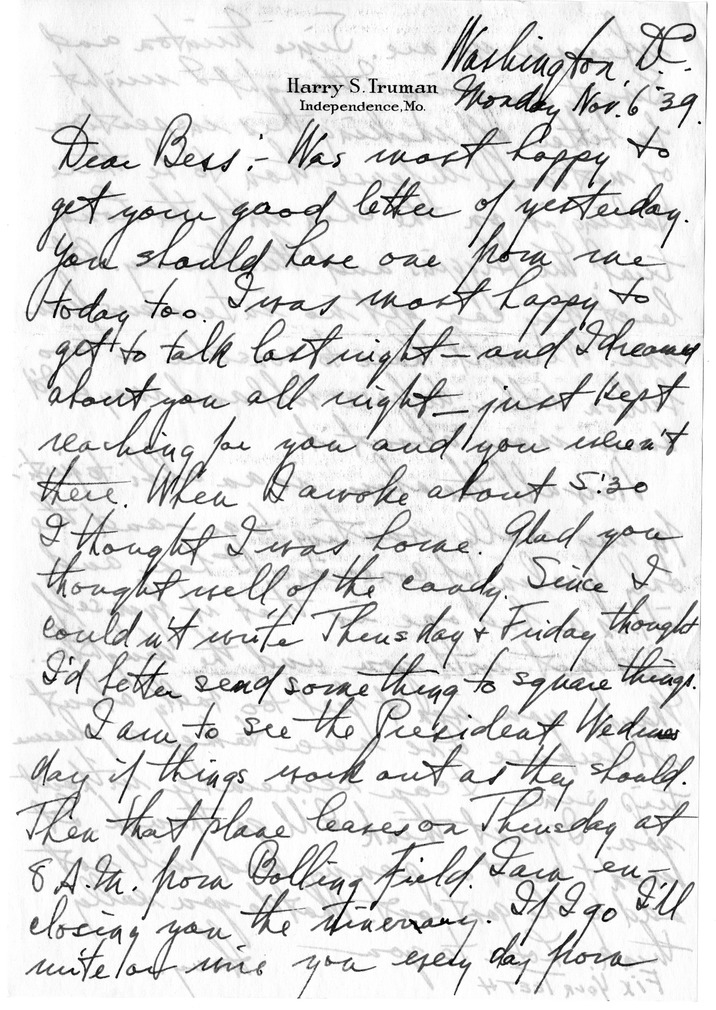 Washington, D.C.
Harry S. Truman
Independence, Mo.
Monday Nov. 6 '39.
Dear Bess:- Was most happy to
get your good letter of yesterday.
You should have one from me
today too. I was most happy to
get to talk last night - and I dreamed
about you all night - just kept
reaching for you and you weren't
there. When I awoke about 5:30
I thought I was home. Glad you
thought well of the candy. Since I
couldn't write Thursday & Friday thought
I'd better send something to square things.
I am to see the President Wednes
day if things work out as they should.
Then that plane leaves on Thursday at
8 A.M. from Bolling Field. I am en-
closing you the itinerary. If I go I'll
write or wire you every day from